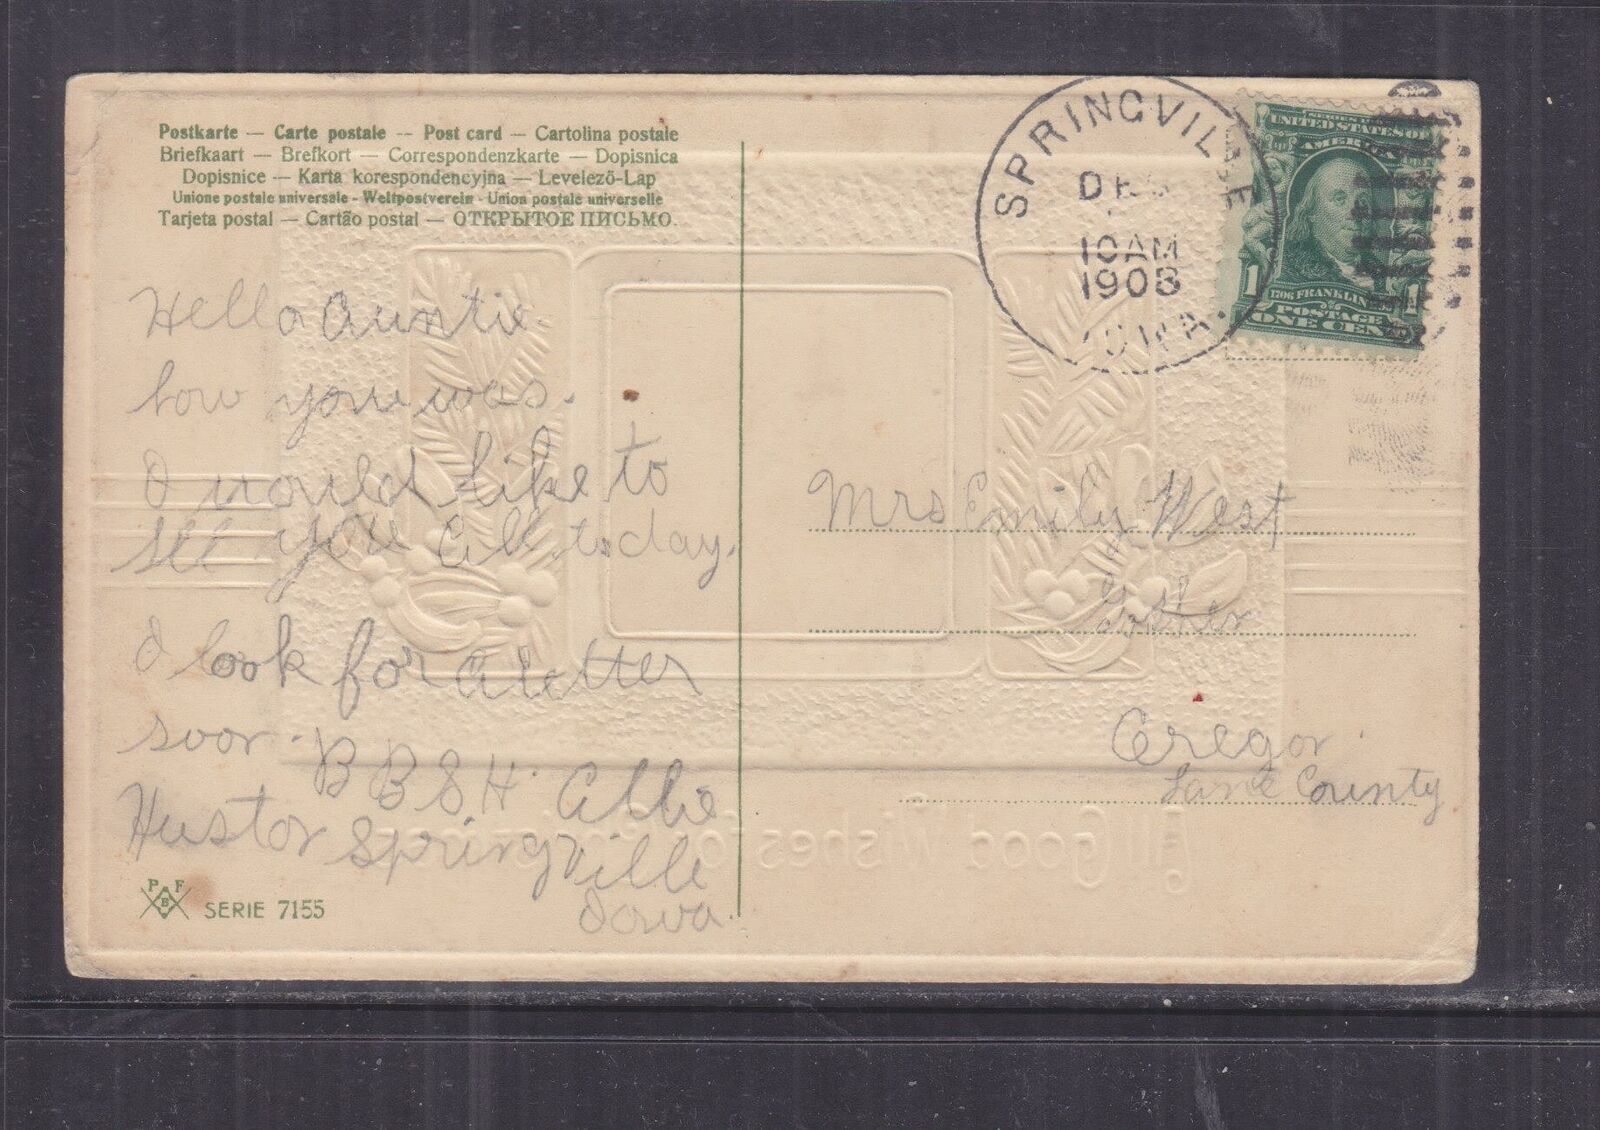 Postkarte — Carte postale -- Post card — Cartolina postale
Briefkaart — Brefkort — Correspondenzkarte — Dopisnica
Dopisnice — Karta korespondencyjna — Levelező-Lap
Unione postale universale - Weltpostverein - Union postale universelle
Tarjeta postal — Cartão postal — ОТКРЫТОЕ ПИСЬМО.
SPRINGVILLE
DEC
10AM
1908
IOWA.
SERIES 1902
UNITED STATES OF
AMERICA
1706 FRANKLIN
1 1
POSTAGE
ONE CENT
Hello Auntie.
how you was.
I would like to
see you all to day.
I look for a letter
soon.
BBSH. Allie
Huston Springville
Iowa.
Mrs Emily West
Goshen
Oregon.
Lane County
All Good Wishes for
P F
B
SERIE 7155